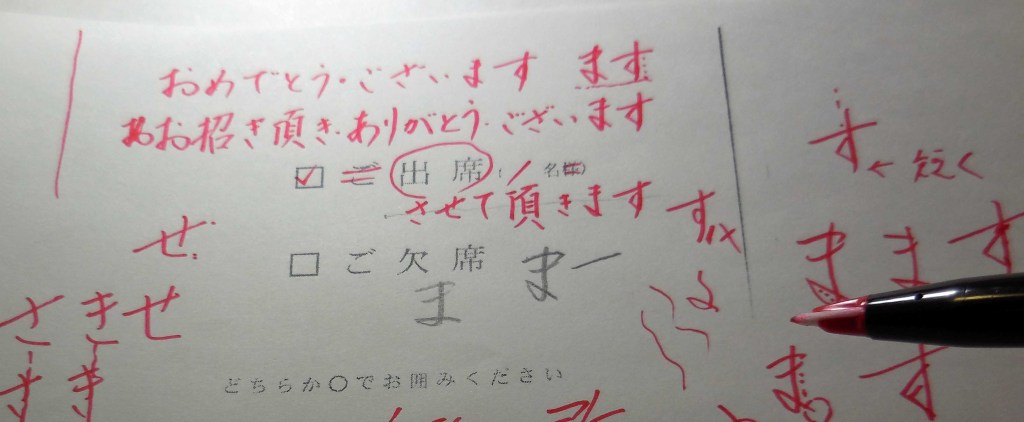 おめでとう・ございます ます
お招き頂き・ありがとう・ございます
☑ ご 出 席 / 名
す ← 短く
させて頂きます す
せ゛
ま ま す
□ ご 欠 席 まー
ま
さ き せ
す き
ま す
どちらか〇でお囲みください